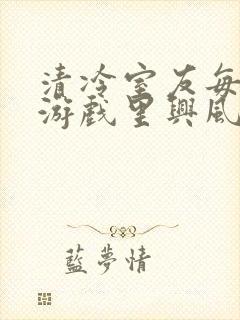 清冷室友每
游戲里興風
藍夢情